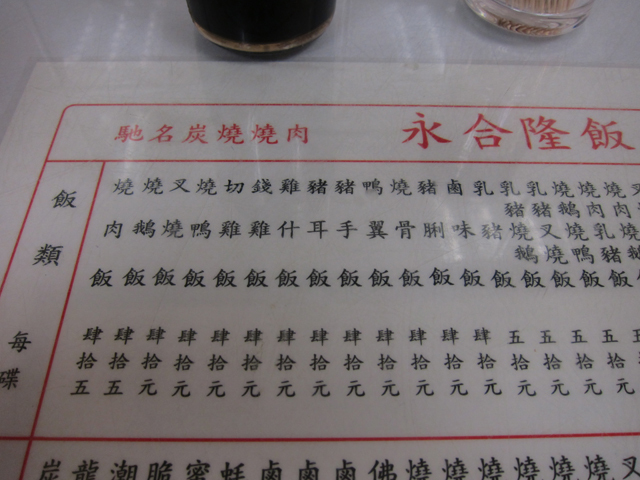 馳名炭燒燒肉
永合隆飯
飯類
每碟
燒肉飯 肆拾五
燒鵝飯 肆拾五
叉燒飯 肆拾元
燒鴨飯 肆拾元
切雞飯 肆拾元
錢雞飯 肆拾元
雞什飯 肆拾元
豬耳飯 肆拾元
豬手飯 肆拾元
鴨翼飯 肆拾元
燒骨飯 肆拾元
豬脷飯 肆拾元
鹵味飯 肆拾元
乳豬飯 五拾元
乳豬燒鵝飯 五拾元
乳豬叉燒飯 五拾元
燒鵝燒鴨飯 五拾元
燒肉乳豬飯 五拾
燒肉燒鵝
叉
炭 龍 潮 脆 蜜 蚝 鹵 鹵 鹵 佛 燒 燒 燒 燒 燒 燒 叉